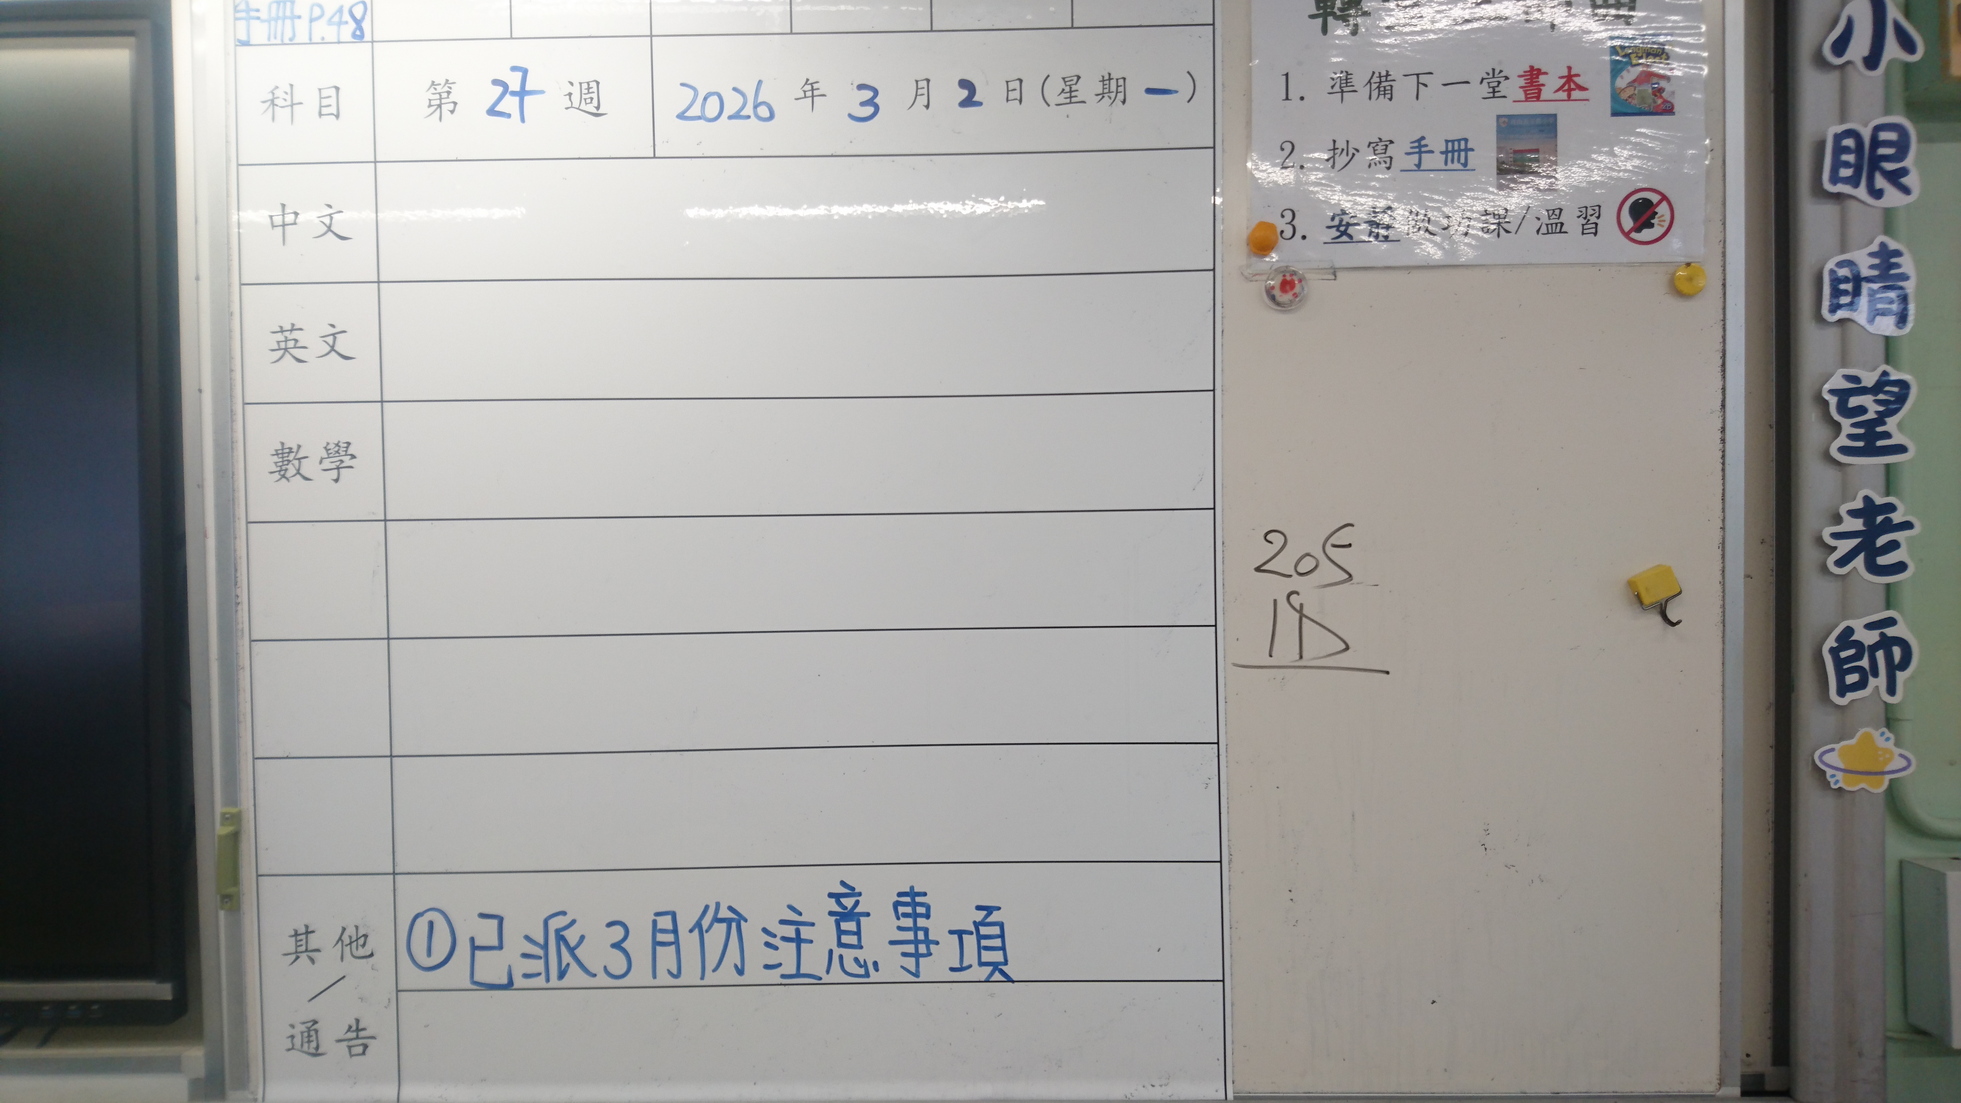 手冊 P.48
科目 第 27 週 2026 年 3 月 2 日(星期一)
中文
英文
數學
其他/通告
①已派3月份注意事項
1. 準備下一堂書本
2. 抄寫手冊
3. 安靜做功課/溫習
205
小眼睛望老師